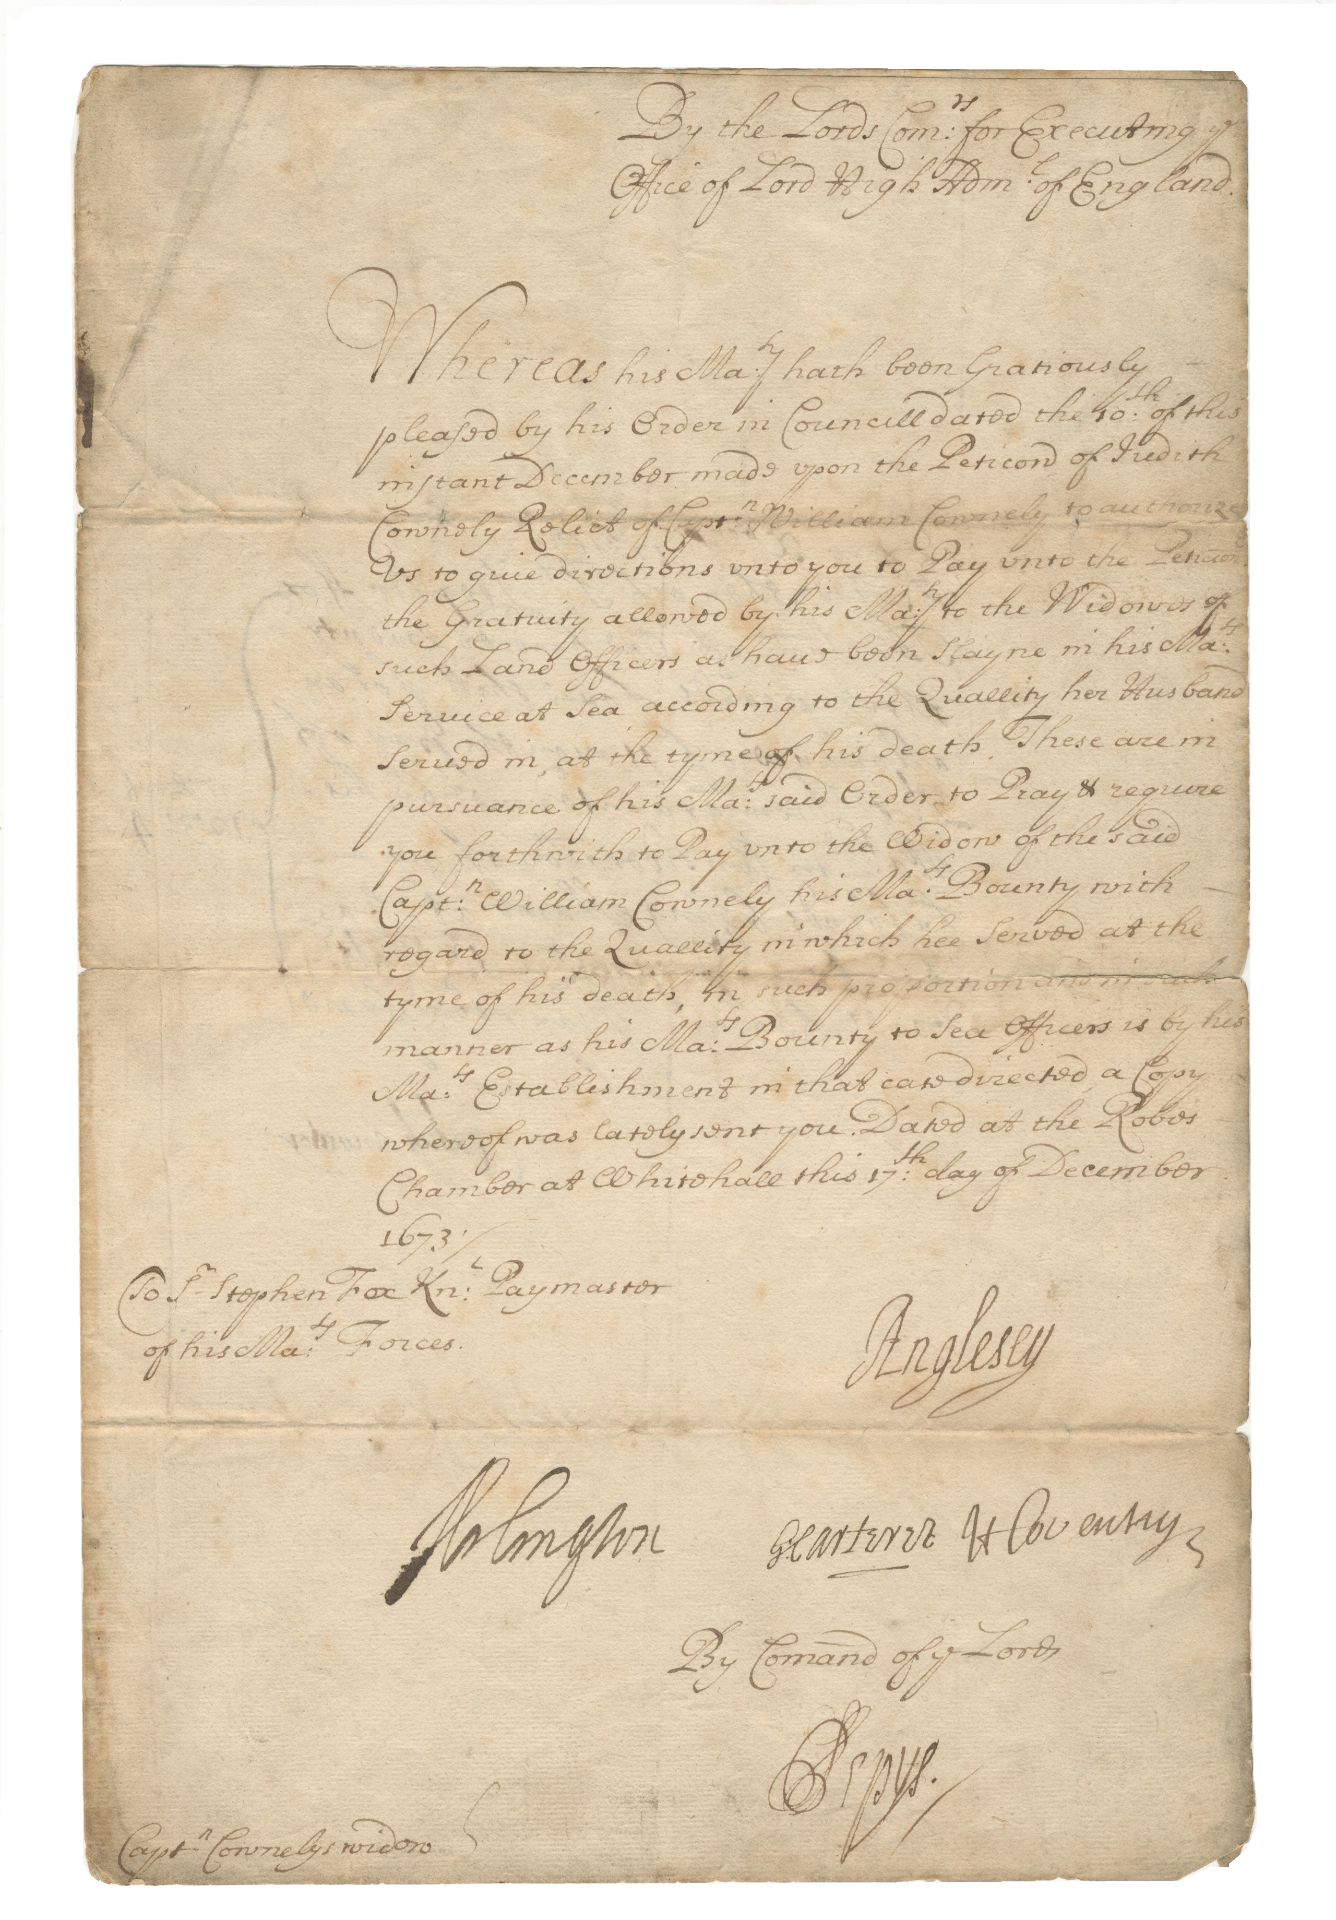 By the Lords Com:rs for Executing ye
Office of Lord High Adm:l of England.
Whereas his Ma:ty hath been Gratiously
pleased by his Order in Councill dated the 10:th of this
instant December made upon the Peticon of Judith
Cownely Relict of Capt:n William Cownely to authorize
Us to giue directions vnto you to Pay vnto the
the Gratuity allowed by his Ma:ty to the Widowes of
such Land Officers as haue been Slayne in his Ma:ts
Service at Sea according to the Quallity her Husband
Serued in, at the tyme of his death, These are in
pursuance of his Ma:ts said Order to Pray & require
you forthwith to Pay vnto the Widow of the said
Capt:n William Cownely his Ma:ts Bounty with
regard to the Quallity in which hee Served at the
tyme of his death, in such proportion and in such
manner as his Ma:ts Bounty to Sea Officers is by his
Ma:ts Establishment in that case directed, a Copy
whereof was lately sent you. Dated at the Robes
Chamber at Whitehall this 17:th day of December
1673:/
To Sr Stephen Fox Kn:t Paymaster
of his Ma:ts Forces.
Anglesey
Arlington GCarteret H Coventry
By Comand of ye Lords
SPepys.
Capt:n Cownelys widow